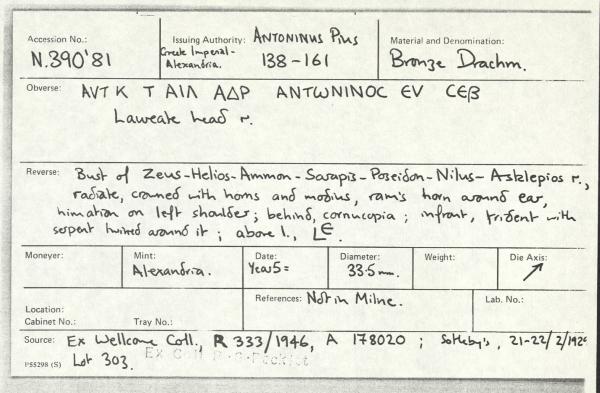 Accession No.: Issuing Authority: ANTONINUS PIUS Material and Denomination:
N.390'81 Greek Imperial- Alexandria. 138-161 Bronze Drachm.
Obverse: AVT K T AIΛ AΔP ANTωNINOC EV CEβ
Laureate head r.
Reverse: Bust of Zeus-Helios-Ammon-Sarapis-Poseidon-Nilus-Asklepios r.,
radiate, crowned with horns and modius, ram's horn around ear,
himation on left shoulder; behind, cornucopia; infront, trident with
serpent twined around it; above l., LE.
Moneyer: Mint: Date: Diameter: Weight: Die Axis:
Alexandria. Year 5= 33.5mm. ↗
References: Not in Milne. Lab. No.:
Location:
Cabinet No.: Tray No.:
Source: Ex Wellcome Coll., R 333/1946, A 178020; Sotheby's, 21-22/2/192
Lot 303. Ex Coll
P55298 (S)